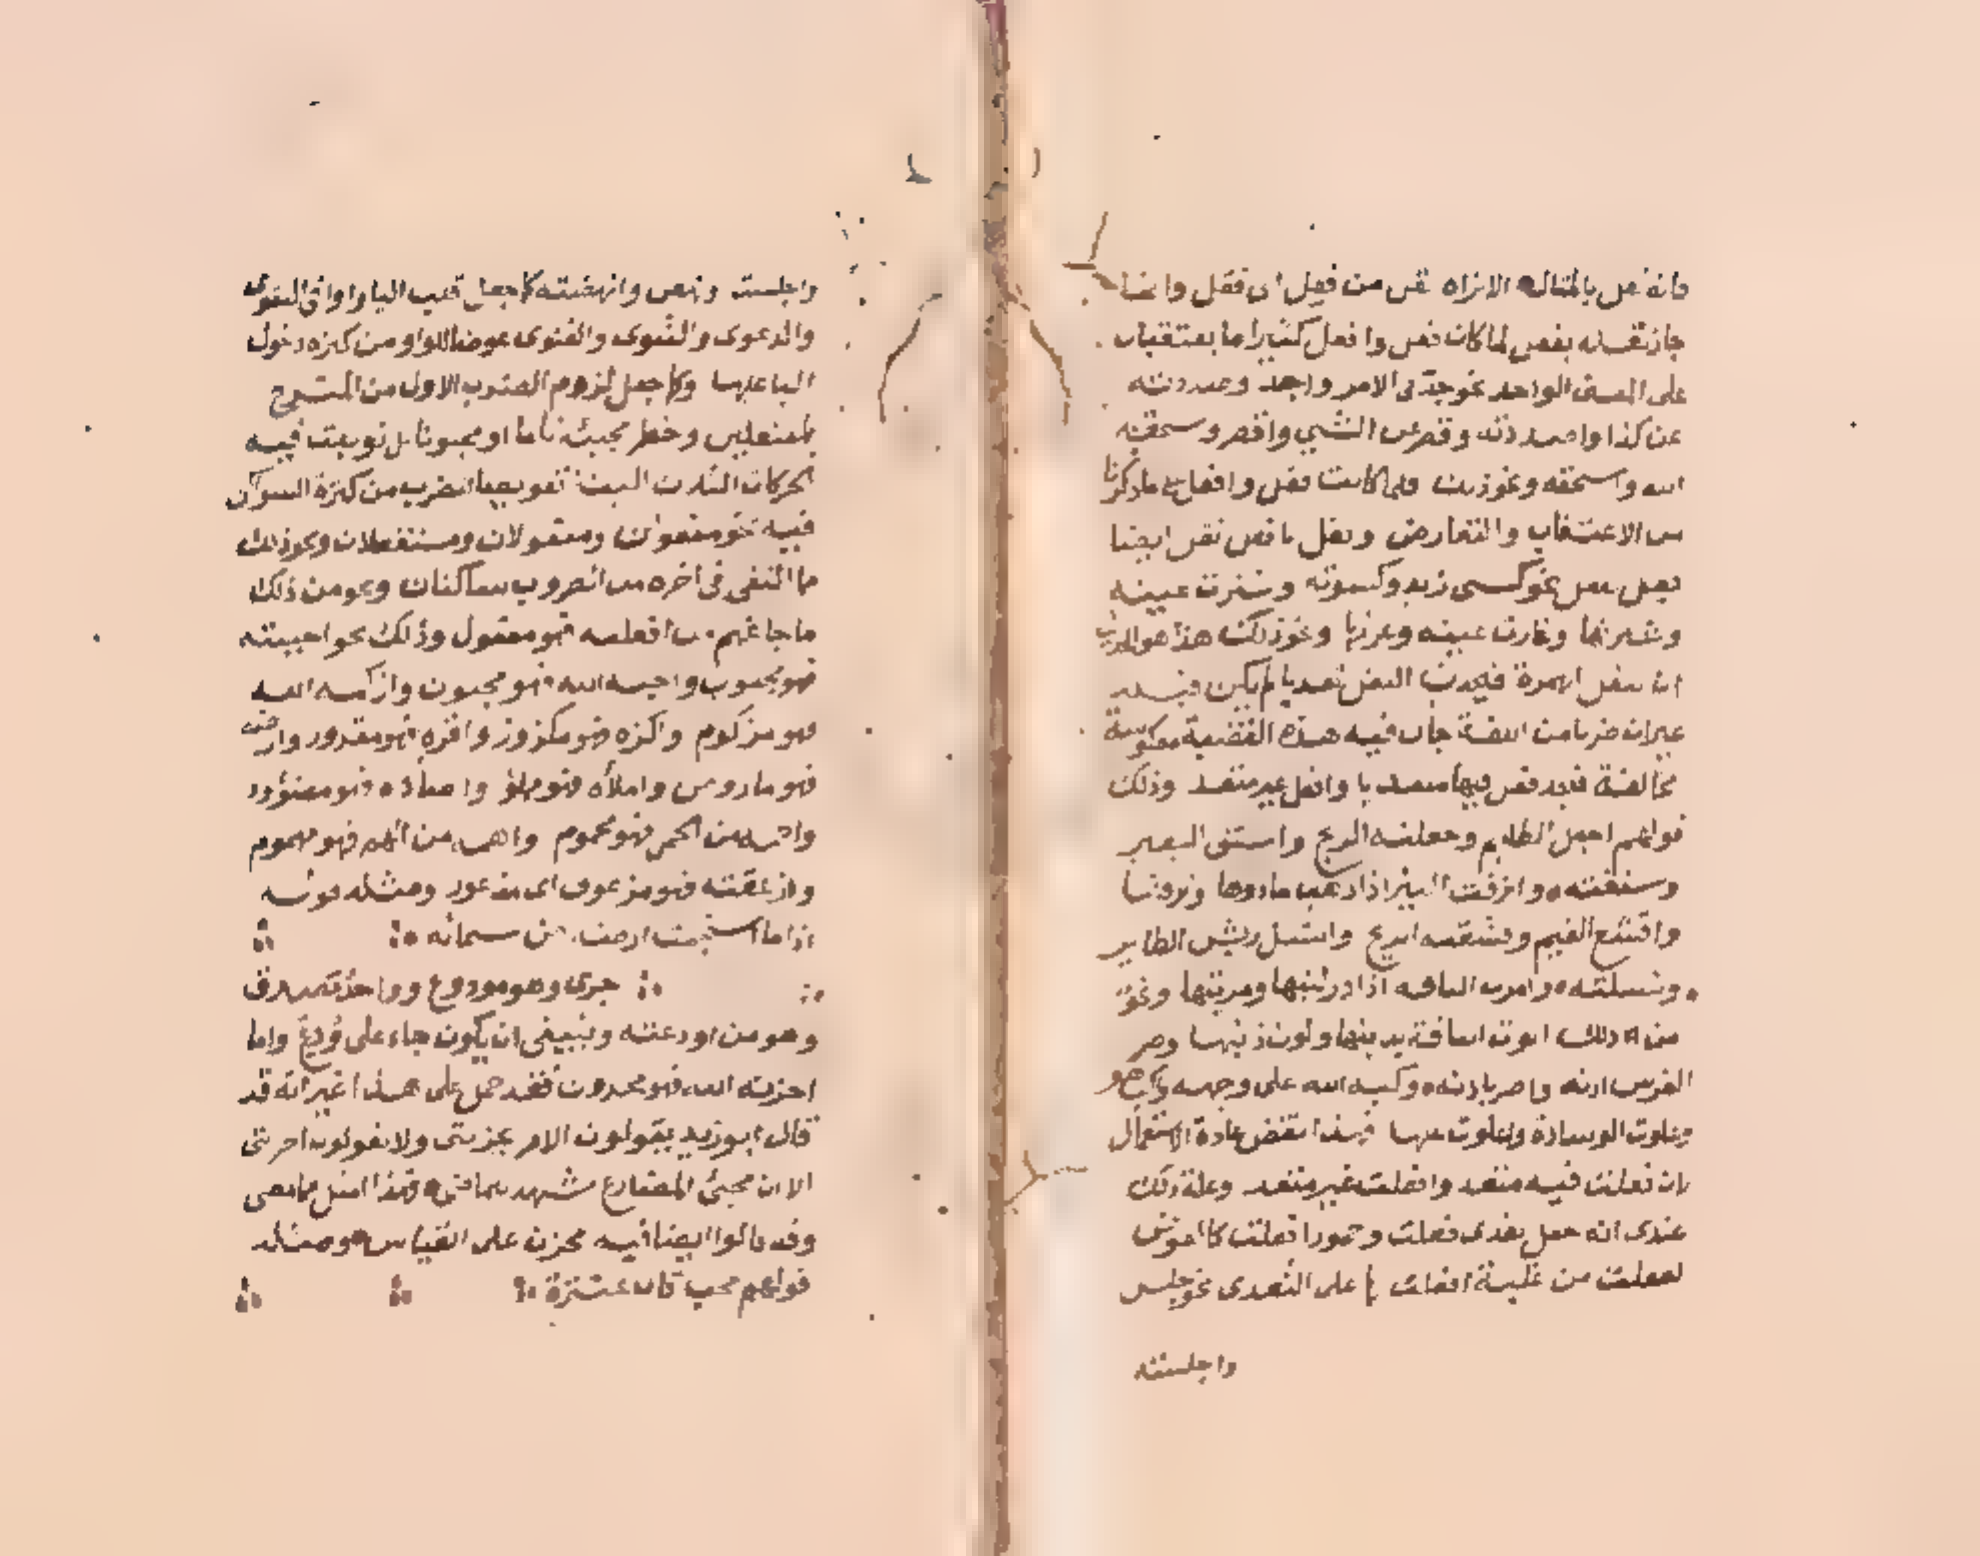 فانه نقل بالمثال الا تراه نقل من فعل الى فعل وايضا
جاز نقله بفعل لما كان فعل وافعل كثيرا ما يعتقبان
على المعنى الواحد نحو جد في الامر واجد وصددته
عن كذا واصددته وقصر عن الشي واقصر وسحقه
الله واسحقه ونحو ذلك فلما كانت فعل وافعل على ما ذكرنا
من الاعتقاب والتعارض ونقل بافعل نقل ايضا
بفعل نحو كسى زيد وكسوته وشترت عينه
وشترتها وغارت عينه وغرتها ونحو ذلك هذا هو
ان ينقل الهمزة فيحدث النقل تعديا لم يكن قبله
غير ان ضربا من اللغة جاءت فيه هذه القضية معكوسة
مخالفة فتجد فعل فيها متعديا وافعل غير متعد وذلك
قولهم اجفل الظليم وجفلته الريح واشنق البعير
وشنقته وانزفت البئر اذا ذهب ماؤها ونزفتها
واقشع الغيم وقشعته الريح وانسل ريش الطاير
ونسلته وامرت الناقة اذا در لبنها ومريتها ونحو
من ذلك الوت الناقة بذنبها ولوت ذنبها وصر
الفرس اذنه واصر باذنه وكبه الله على وجهه واكب هو
وعلوت الوسادة واعليت عنها فهذا نقض عادة الاستعمال
لان فعلت فيه متعد وافعلت غير متعد وعلة ذلك
عندي انه جعل تعدي فعلت وجمود افعلت كالعوض
لفعلت من غلبة افعلت لها على التعدي نحو جلس
واجلسته
واجلسته ونهض وانهضته كما جعل قلب اليا واوا في التقوى
والدعوى والثنوى والفتوى عوضا للواو من كثرة دخول
اليا عليها وكما جعل لزوم الضرب الاول من المنسرح
لمستفعلن وحظر مجيئه تاما او مخبونا بل توبعت فيه
الحركات الثلاث البتة تعويضا للضرب من كثرة السواكن
فيه نحو مفعولن ومفعولان ومستفعلان ونحو ذلك
مما التقى في آخره من الضروب ساكنان ونحو من ذلك
ما جا عنهم من افعلته فهو مفعول وذلك نحو احببته
فهو محبوب واجنه الله فهو مجنون وازكمه الله
فهو مزكوم واكزه فهو مكزوز واقره فهو مقرور وارضه
فهو ماروض واملأه فهو مملوء واضأده فهو مضؤود
واحمه من الحمى فهو محموم واهمه من الهم فهو مهموم
وازعقته فهو مزعوق اى مذعور ومثله قوله
اذا ما استحمت ارضه من سمائه
جرى وهو مودوع وواعد مصدق
وهو من اودعته وينبغي ان يكون جاء على وُدِع واما
احزنه الله فهو محزون فقد حمل على هذا غير انه قد
قال ابو زيد يقولون الامر يحزنني ولا يقولون احزنني
الا ان مجئ المضارع يشهد للماضي فهذا امثل مما مضى
وقد قالوا ايضا فيه محزن على القياس ومثله
قولهم محب قال عنترة